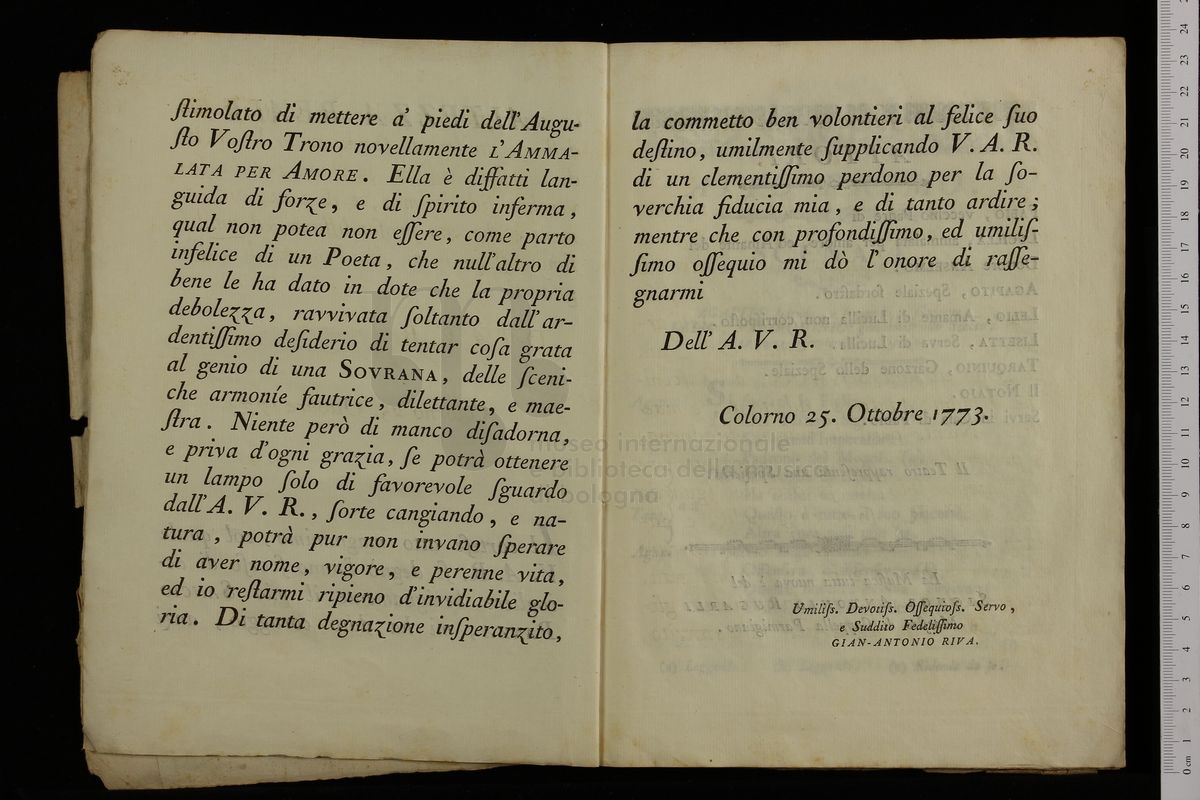 ſtimolato di mettere a' piedi dell'Augu-
ſto Voſtro Trono novellamente L'AMMA-
LATA PER AMORE. Ella è diffatti lan-
guida di forze, e di ſpirito inferma,
qual non potea non eſſere, come parto
infelice di un Poeta, che null'altro di
bene le ha dato in dote che la propria
debolezza, ravvivata ſoltanto dall'ar-
dentiſſimo deſiderio di tentar coſa grata
al genio di una SOVRANA, delle ſceni-
che armoníe fautrice, dilettante, e mae-
ſtra. Niente però di manco diſadorna,
e priva d'ogni grazia, ſe potrà ottenere
un lampo ſolo di favorevole ſguardo
dall'A. V. R., ſorte cangiando, e na-
tura, potrà pur non invano ſperare
di aver nome, vigore, e perenne vita,
ed io reſtarmi ripieno d'invidiabile glo-
ria. Di tanta degnazione inſperanzito,
la commetto ben volontieri al felice ſuo
deſtino, umilmente ſupplicando V. A. R.
di un clementiſſimo perdono per la ſo-
verchia fiducia mia, e di tanto ardire;
mentre che con profondiſſimo, ed umiliſ-
ſimo oſſequio mi dò l'onore di raſſe-
gnarmi
Dell' A. V. R.
Colorno 25. Ottobre 1773.
Umiliſs. Devotiſs. Oſſequioſs. Servo,
e Suddito Fedeliſſimo
GIAN-ANTONIO RIVA.
museo internazionale
e biblioteca della musica
di bologna